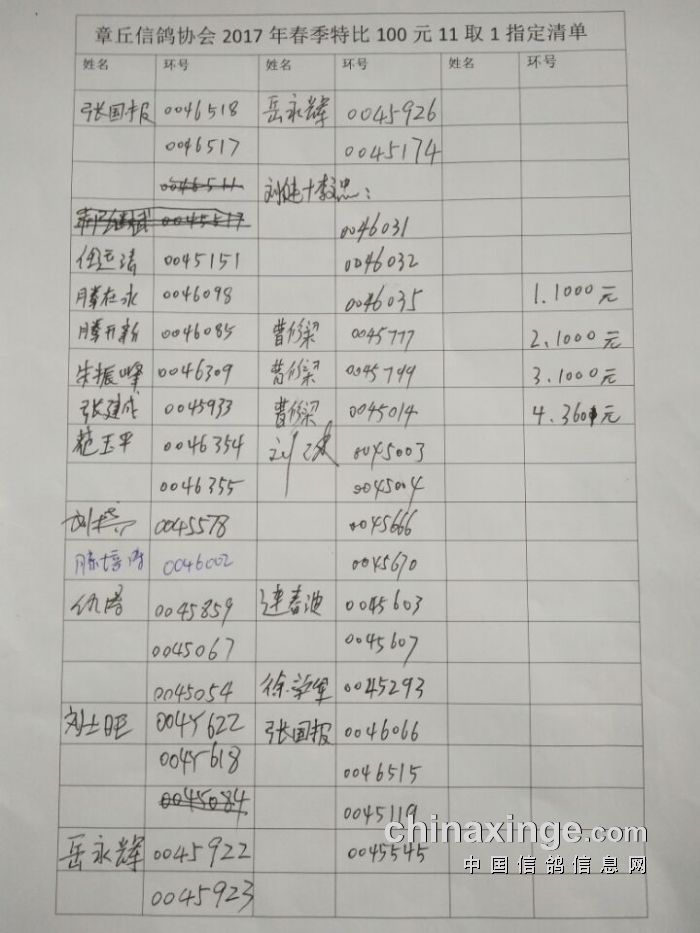 章丘信鸽协会2017年春季特比100元11取1指定清单
姓名 环号 姓名 环号 姓名 环号
张国报 0046518 岳永辉 0045926
0046517 0045174
0046511 刘继十李忠：
0045517 0046031
任运清 0045151 0046032
滕在永 0046098 0046035 1.1000元
滕开新 0046085 曹修梁 0045777 2.1000元
朱振峰 0046309 曹修梁 0045799 3.1000元
张建成 0045933 曹修梁 0045014 4.360元
范玉平 0046354 刘 0045003
0046355 0045004
刘 0045578 0045666
滕培涛 0046002 0045670
仇浩 0045859 逯春迪 0045603
0045067 0045607
0045054 徐学军 0045293
刘士旺 0045622 张国报 0046066
0045618 0046515
0045084 0045119
岳永辉 0045922 0045545
0045923
chinaxinge.com
中国信鸽信息网